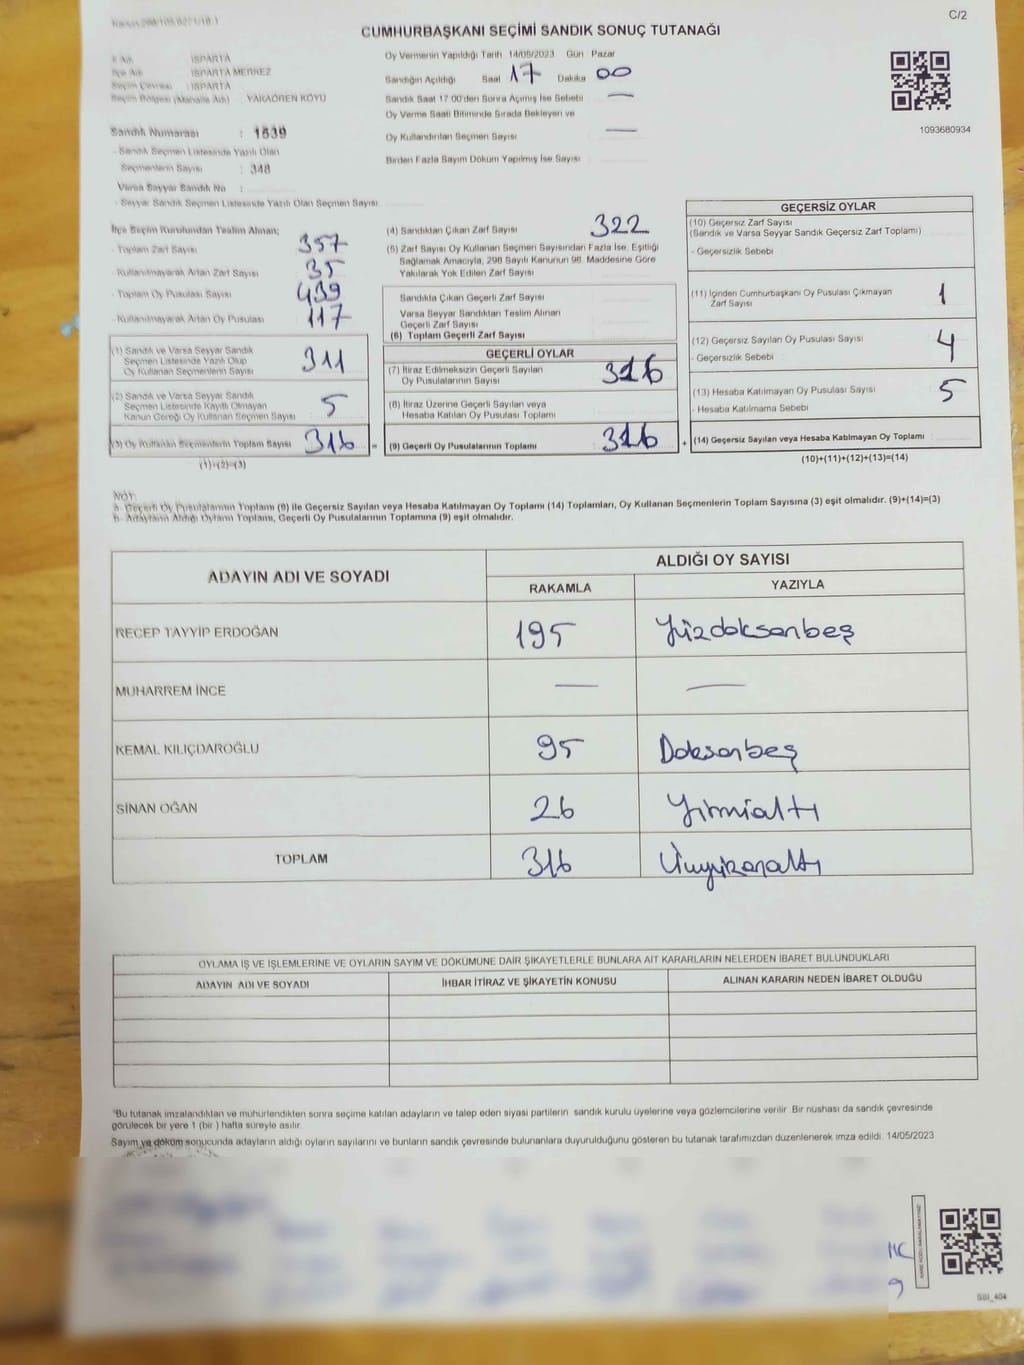 C/2
CUMHURBAŞKANI SEÇİMİ SANDIK SONUÇ TUTANAĞI
İl Adı : ISPARTA
İlçe Adı : ISPARTA MERKEZ
Seçim Çevresi : ISPARTA
Seçim Bölgesi (Mahalle Adı) YAKAÖREN KÖYÜ
Sandık Numarası : 1539
- Sandık Seçmen Listesinde Yazılı Olan
Seçmenlerin Sayısı : 348
Varsa Seyyar Sandık No :
- Seyyar Sandık Seçmen Listesinde Yazılı Olan Seçmen Sayısı
Oy Vermenin Yapıldığı Tarih 14/05/2023 Gün Pazar
Sandığın Açıldığı Saat 17 Dakika 00
Sandık Saat 17:00'den Sonra Açılmış İse Sebebi —
Oy Verme Saati Bitiminde Sırada Bekleyen ve
Oy Kullandırılan Seçmen Sayısı —
Birden Fazla Sayım Döküm Yapılmış İse Sayısı
1093680934
İlçe Seçim Kurulundan Teslim Alınan;
- Toplam Zarf Sayısı 357
- Kullanılmayarak Artan Zarf Sayısı 35
- Toplam Oy Pusulası Sayısı 439
- Kullanılmayarak Artan Oy Pusulası 117
(1) Sandık ve Varsa Seyyar Sandık
Seçmen Listesinde Yazılı Olup
Oy Kullanan Seçmenlerin Sayısı 311
(2) Sandık ve Varsa Seyyar Sandık
Seçmen Listesinde Kayıtlı Olmayan
Kanun Gereği Oy Kullanan Seçmen Sayısı 5
(3) Oy Kullanan Seçmenlerin Toplam Sayısı 316 =
(1)+(2)=(3)
(4) Sandıktan Çıkan Zarf Sayısı 322
(5) Zarf Sayısı Oy Kullanan Seçmen Sayısından Fazla İse, Eşitliği
Sağlamak Amacıyla, 298 Sayılı Kanunun 98. Maddesine Göre
Yakılarak Yok Edilen Zarf Sayısı
Sandıkta Çıkan Geçerli Zarf Sayısı
Varsa Seyyar Sandıktan Teslim Alınan
Geçerli Zarf Sayısı
(6) Toplam Geçerli Zarf Sayısı
GEÇERLİ OYLAR
(7) İtiraz Edilmeksizin Geçerli Sayılan
Oy Pusulalarının Sayısı 316
(8) İtiraz Üzerine Geçerli Sayılan veya
Hesaba Katılan Oy Pusulası Toplamı
(9) Geçerli Oy Pusulalarının Toplamı 316 +
GEÇERSİZ OYLAR
(10) Geçersiz Zarf Sayısı
(Sandık ve Varsa Seyyar Sandık Geçersiz Zarf Toplamı)
- Geçersizlik Sebebi
(11) İçinden Cumhurbaşkanı Oy Pusulası Çıkmayan
Zarf Sayısı 1
(12) Geçersiz Sayılan Oy Pusulası Sayısı 4
- Geçersizlik Sebebi
(13) Hesaba Katılmayan Oy Pusulası Sayısı 5
- Hesaba Katılmama Sebebi
(14) Geçersiz Sayılan veya Hesaba Katılmayan Oy Toplamı
(10)+(11)+(12)+(13)=(14)
NOT:
a- Geçerli Oy Pusulalarının Toplamı (9) ile Geçersiz Sayılan veya Hesaba Katılmayan Oy Toplamı (14) Toplamları, Oy Kullanan Seçmenlerin Toplam Sayısına (3) eşit olmalıdır. (9)+(14)=(3)
b- Adayların Aldığı Oyların Toplamı, Geçerli Oy Pusulalarının Toplamına (9) eşit olmalıdır.
ADAYIN ADI VE SOYADI
ALDIĞI OY SAYISI
RAKAMLA YAZIYLA
RECEP TAYYİP ERDOĞAN 195 Yüzdoksanbeş
MUHARREM İNCE — —
KEMAL KILIÇDAROĞLU 95 Doksanbeş
SİNAN OĞAN 26 Yirmialtı
TOPLAM 316 Üçyüzonaltı
OYLAMA İŞ VE İŞLEMLERİNE VE OYLARIN SAYIM VE DÖKÜMÜNE DAİR ŞİKAYETLERLE BUNLARA AİT KARARLARIN NELERDEN İBARET BULUNDUKLARI
ADAYIN ADI VE SOYADI İHBAR İTİRAZ VE ŞİKAYETİN KONUSU ALINAN KARARIN NEDEN İBARET OLDUĞU
"Bu tutanak imzalandıktan ve mühürlendikten sonra seçime katılan adayların ve talep eden siyasi partilerin sandık kurulu üyelerine veya gözlemcilerine verilir. Bir nüshası da sandık çevresinde
görülecek bir yere 1 (bir) hafta süreyle asılır.
Sayım ve döküm sonucunda adayların aldığı oyların sayılarını ve bunların sandık çevresinde bulunanlara duyurulduğunu gösteren bu tutanak tarafımızdan düzenlenerek imza edildi. 14/05/2023
SSI_404